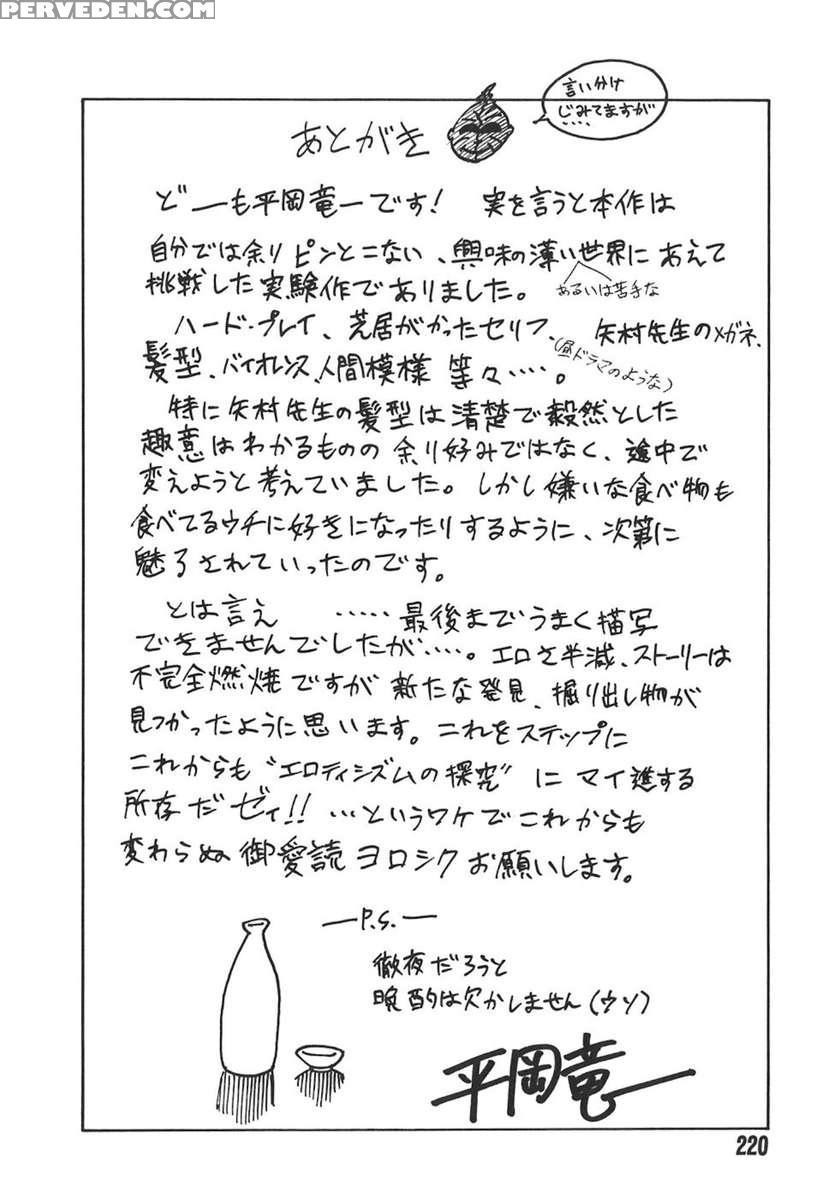 PERVEDEN.COM
言い分け
じみてますが
‥‥
あとがき
どーも平岡竜一です! 実を言うと本作は
自分では余りピンとこない、興味の薄い世界にあえて
あるいは苦手な
挑戦した実験作でありました。
ハード・プレイ、芝居がかったセリフ、矢村先生のメガネ、
(昼ドラマのような)
髪型、バイオレンス、人間模様 等々‥‥。
特に矢村先生の髪型は清楚で毅然とした
趣意はわかるものの余り好みではなく、途中で
変えようと考えていました。しかし嫌いな食べ物も
食べてるウチに好きになったりするように、次第に
魅了されていったのです。
とは言え ‥‥‥最後までうまく描写
できませんでしたが‥‥。エロさ半減、ストーリーは
不完全燃焼ですが新たな発見、掘り出し物が
見つかったように思います。これをステップに
これからも“エロティシズムの探究”にマイ進する
所存だゼィ!! …というワケでこれからも
変わらぬ御愛読ヨロシクお願いします。
―P.S.―
徹夜だろうと
晩酌は欠かしません(ウソ)
平岡竜一
220